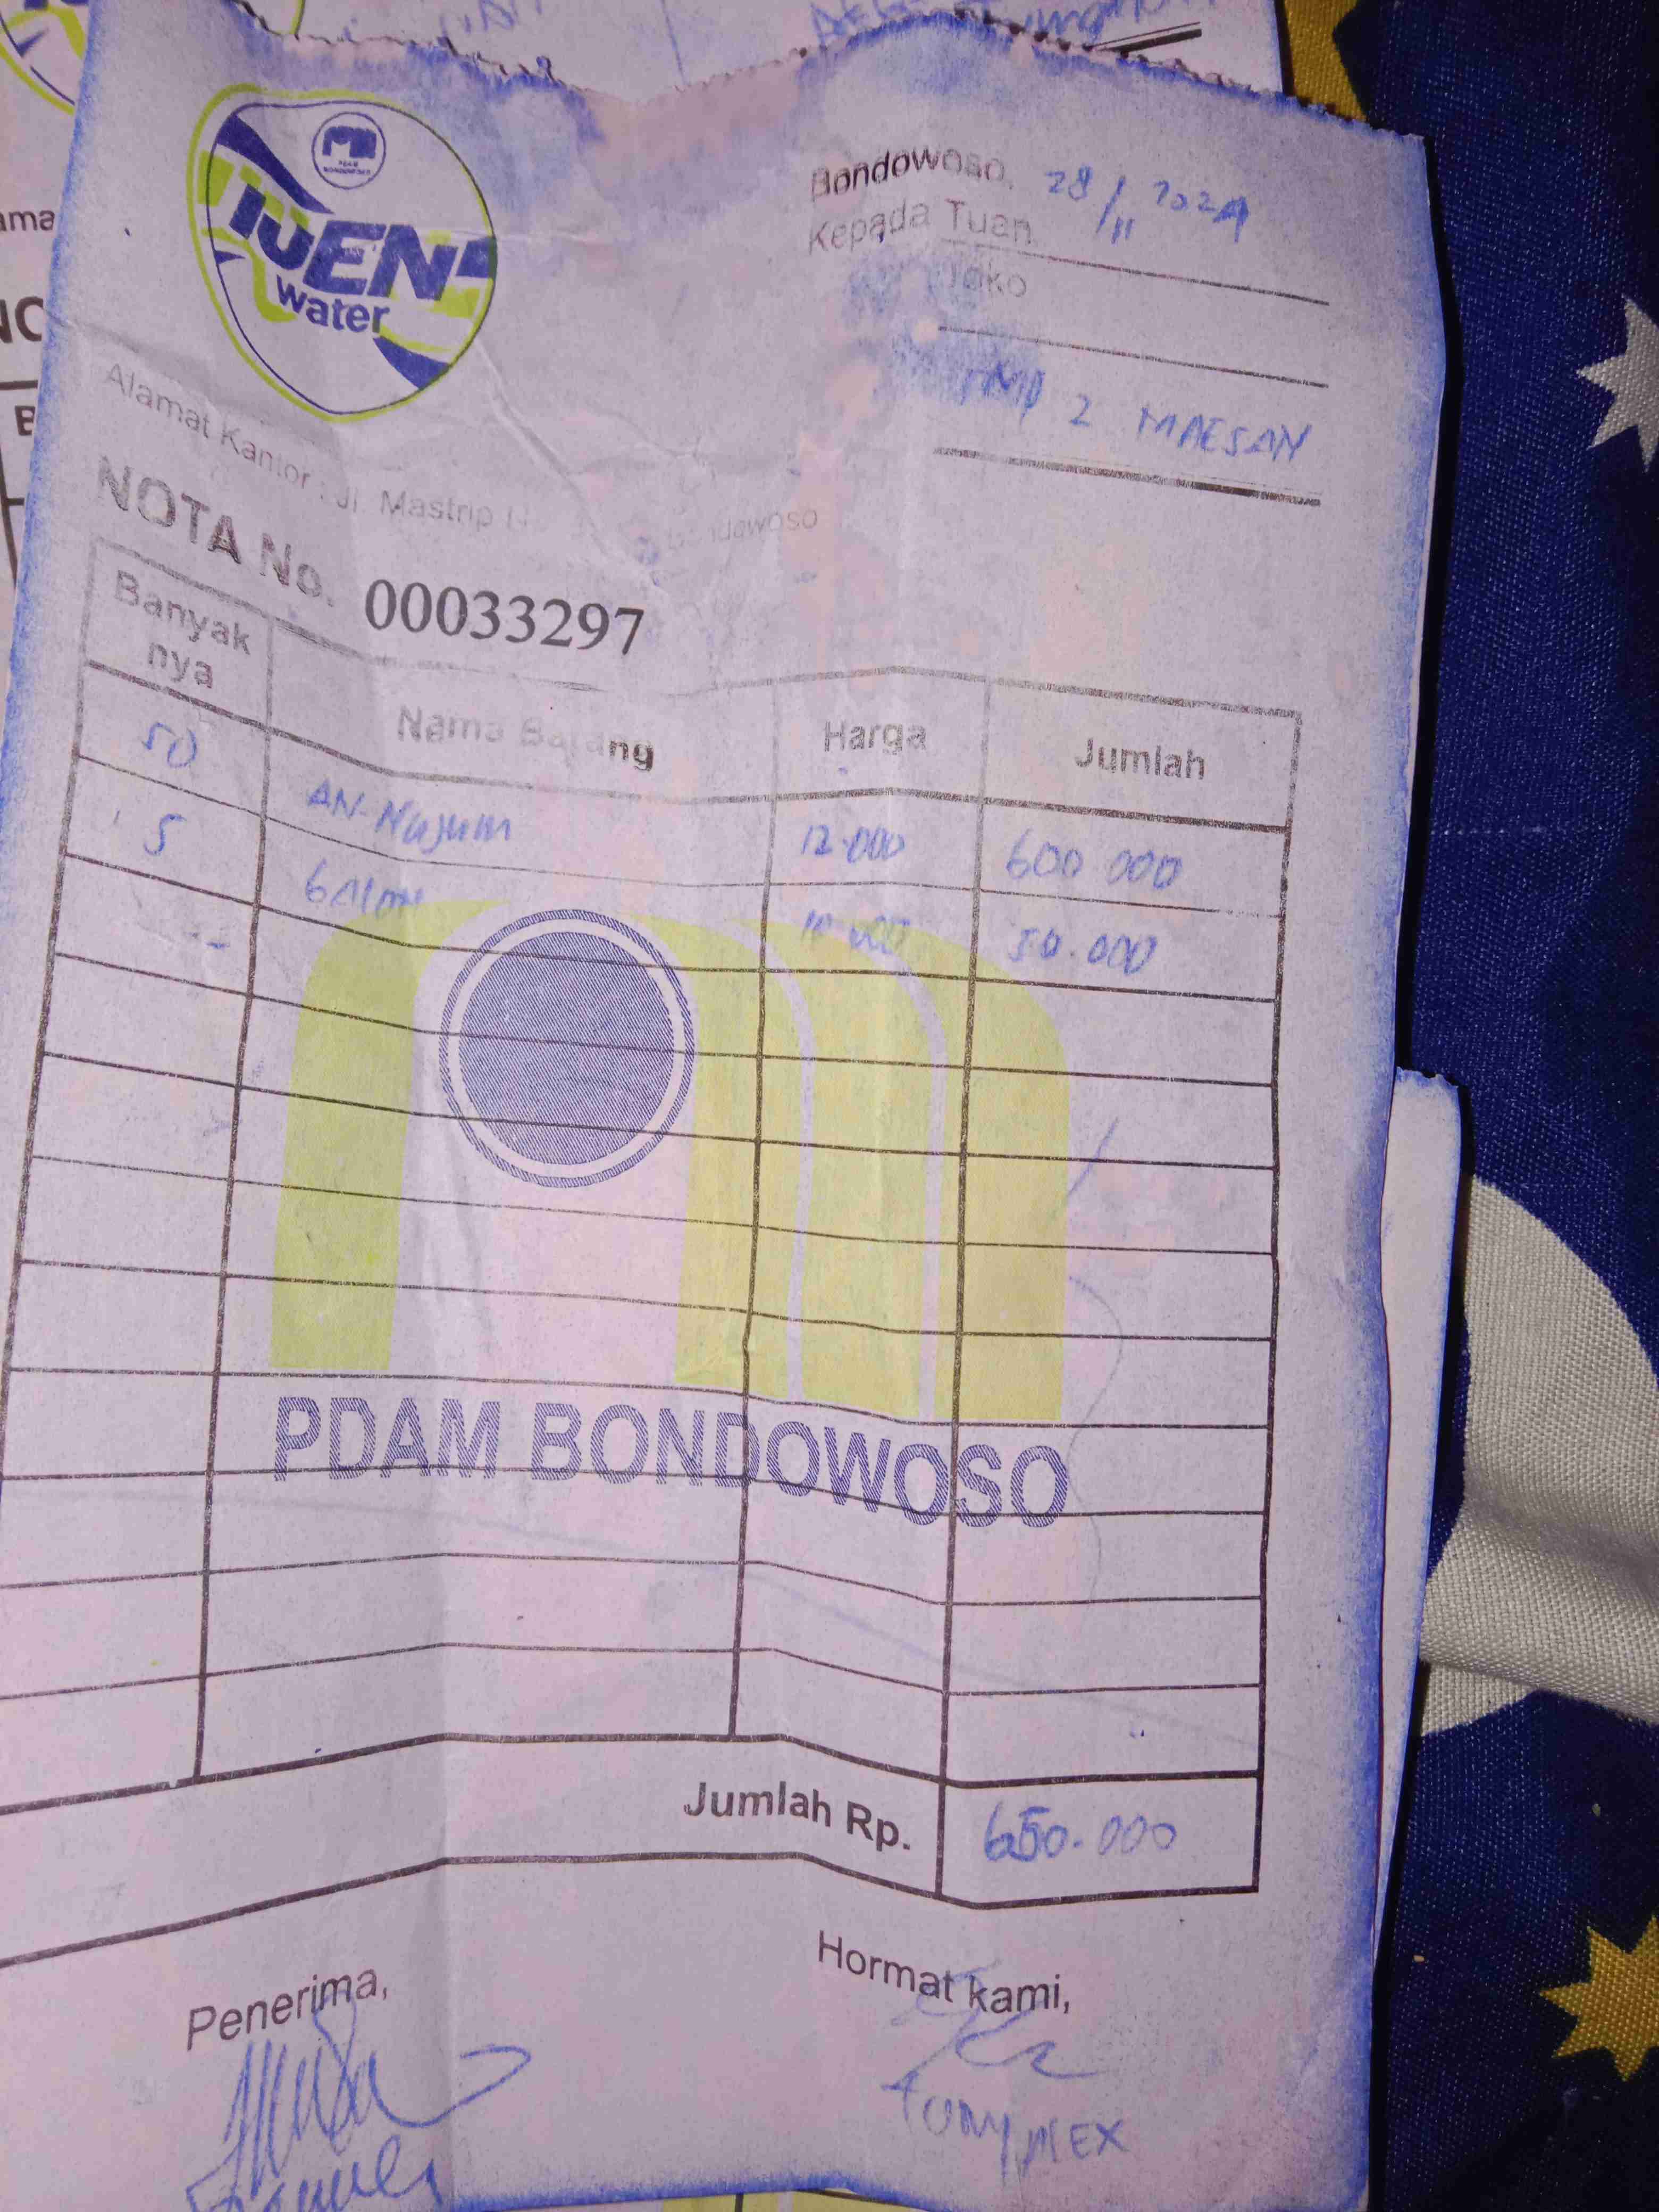 IJEN
water
PDAM
BONDOWOSO
Bondowoso, 28/11 2024
Kepada Tuan
Toko
2 MAESAN
Alamat Kantor : Jl. Mastrip Bondowoso
NOTA No. 00033297
Banyak nya Nama Barang Harga Jumlah
50 AN-Nujum 12.000 600 000
5 GAlon 10.000 50.000
PDAM BONDOWOSO
Jumlah Rp. 650.000
Penerima, Hormat kami,
TONY ALEX